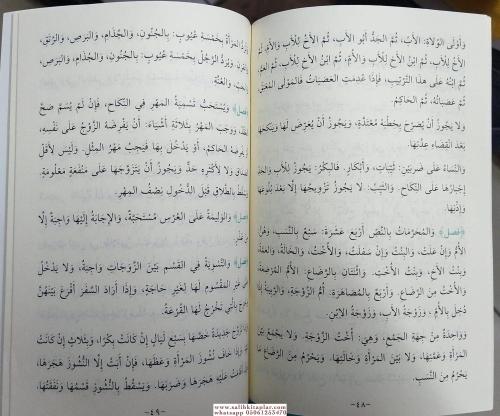 وَأَوْلَى الْوُلَاةِ: الْأَبُ، ثُمَّ الْجَدُّ أَبُو الْأَبِ، ثُمَّ الْأَخُ لِلْأَبِ وَالْأُمِّ، ثُمَّ
الْأَخُ لِلْأَبِ، ثُمَّ ابْنُ الْأَخِ لِلْأَبِ وَالْأُمِّ، ثُمَّ ابْنُ الْأَخِ لِلْأَبِ، ثُمَّ الْعَمُّ،
ثُمَّ ابْنُهُ عَلَى هَذَا التَّرْتِيبِ، فَإِذَا عُدِمَتِ الْعَصَبَاتُ فَالْمَوْلَى الْمُعْتِقُ،
ثُمَّ عَصَبَاتُهُ، ثُمَّ الْحَاكِمُ.
وَلَا يَجُوزُ أَنْ يُصَرِّحَ بِخِطْبَةِ مُعْتَدَّةٍ، وَيَجُوزُ أَنْ يُعَرِّضَ لَهَا وَيَنْكِحَهَا
بَعْدَ انْقِضَاءِ عِدَّتِهَا.
وَالنِّسَاءُ عَلَى ضَرْبَيْنِ: ثَيِّبَاتٍ، وَأَبْكَارٍ. فَالْبِكْرُ: يَجُوزُ لِلْأَبِ وَالْجَدِّ
إِجْبَارُهَا عَلَى النِّكَاحِ. وَالثَّيِّبُ: لَا يَجُوزُ تَزْوِيجُهَا إِلَّا بَعْدَ بُلُوغِهَا
وَإِذْنِهَا.
﴿فصل﴾ وَالْمُحَرَّمَاتُ بِالنَّصِّ أَرْبَعَ عَشْرَةَ: سَبْعٌ بِالنَّسَبِ، وَهُنَّ:
الْأُمُّ وَإِنْ عَلَتْ، وَالْبِنْتُ وَإِنْ سَفَلَتْ، وَالْأُخْتُ، وَالْخَالَةُ، وَالْعَمَّةُ،
وَبِنْتُ الْأَخِ، وَبِنْتُ الْأُخْتِ. وَاثْنَتَانِ بِالرَّضَاعِ: الْأُمُّ الْمُرْضِعَةُ،
وَالْأُخْتُ مِنَ الرَّضَاعِ. وَأَرْبَعٌ بِالْمُصَاهَرَةِ: أُمُّ الزَّوْجَةِ، وَالرَّبِيبَةُ إِذَا
دَخَلَ بِالْأُمِّ، وَزَوْجَةُ الْأَبِ، وَزَوْجَةُ الِابْنِ.
وَوَاحِدَةٌ مِنْ جِهَةِ الْجَمْعِ، وَهِيَ: أُخْتُ الزَّوْجَةِ. وَلَا يُجْمَعُ بَيْنَ
الْمَرْأَةِ وَعَمَّتِهَا، وَلَا بَيْنَ الْمَرْأَةِ وَخَالَتِهَا. وَيَحْرُمُ مِنَ الرَّضَاعِ مَا
يَحْرُمُ مِنَ النَّسَبِ.
-٤٨-
وَتُرَدُّ الْمَرْأَةُ بِخَمْسَةِ عُيُوبٍ: بِالْجُنُونِ، وَالْجُذَامِ، وَالْبَرَصِ، وَالرَّتَقِ،
وَالْقَرَنِ. وَيُرَدُّ الرَّجُلُ بِخَمْسَةِ عُيُوبٍ: بِالْجُنُونِ، وَالْجُذَامِ، وَالْبَرَصِ،
وَالْجَبِّ، وَالْعُنَّةِ.
﴿فصل﴾ وَيُسْتَحَبُّ تَسْمِيَةُ الْمَهْرِ فِي النِّكَاحِ، فَإِنْ لَمْ يُسَمَّ صَحَّ
الْعَقْدُ، وَوَجَبَ الْمَهْرُ بِثَلَاثَةِ أَشْيَاءَ: أَنْ يَفْرِضَهُ الزَّوْجُ عَلَى نَفْسِهِ،
أَوْ يَفْرِضَهُ الْحَاكِمُ، أَوْ يَدْخُلَ بِهَا فَيَجِبَ مَهْرُ الْمِثْلِ. وَلَيْسَ لِأَقَلِّ
الصَّدَاقِ وَلَا لِأَكْثَرِهِ حَدٌّ. وَيَجُوزُ أَنْ يَتَزَوَّجَهَا عَلَى مَنْفَعَةٍ مَعْلُومَةٍ.
وَيَسْقُطُ بِالطَّلَاقِ قَبْلَ الدُّخُولِ نِصْفُ الْمَهْرِ.
﴿فصل﴾ وَالْوَلِيمَةُ عَلَى الْعُرْسِ مُسْتَحَبَّةٌ، وَالْإِجَابَةُ إِلَيْهَا وَاجِبَةٌ إِلَّا
مِنْ عُذْرٍ.
﴿فصل﴾ وَالتَّسْوِيَةُ فِي الْقَسْمِ بَيْنَ الزَّوْجَاتِ وَاجِبَةٌ، وَلَا يَدْخُلُ
عَلَى غَيْرِ الْمَقْسُومِ لَهَا لِغَيْرِ حَاجَةٍ، وَإِذَا أَرَادَ السَّفَرَ أَقْرَعَ بَيْنَهُنَّ
وَخَرَجَ بِالَّتِي تَخْرُجُ لَهَا الْقُرْعَةُ.
وَإِذَا تَزَوَّجَ جَدِيدَةً خَصَّهَا بِسَبْعِ لَيَالٍ إِنْ كَانَتْ بِكْرًا، وَبِثَلَاثٍ إِنْ كَانَتْ
ثَيِّبًا. وَإِذَا خَافَ نُشُوزَ الْمَرْأَةِ وَعَظَهَا، فَإِنْ أَبَتْ إِلَّا النُّشُوزَ هَجَرَهَا،
فَإِنْ أَقَامَتْ عَلَيْهِ هَجَرَهَا وَضَرَبَهَا. وَيَسْقُطُ بِالنُّشُوزِ قَسْمُهَا وَنَفَقَتُهَا.
-٤٩-
www.salihkitaplar.com
whatsapp 05061253470